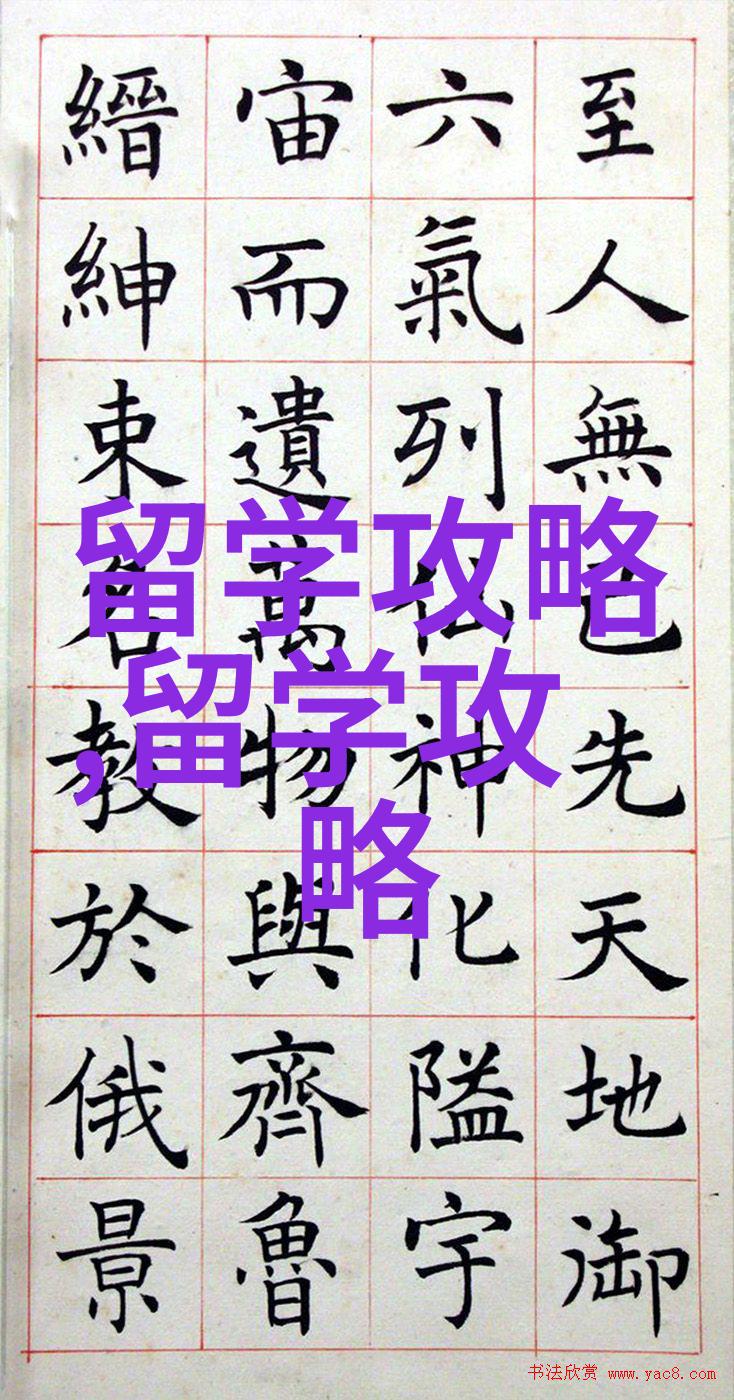 至人無己先天地御
六氣列仙神化隘宇
宙而遺萬物與齊魯
縉紳束名教於俄景
留学攻略
,留学攻
略
书法欣赏 www.yac8.com